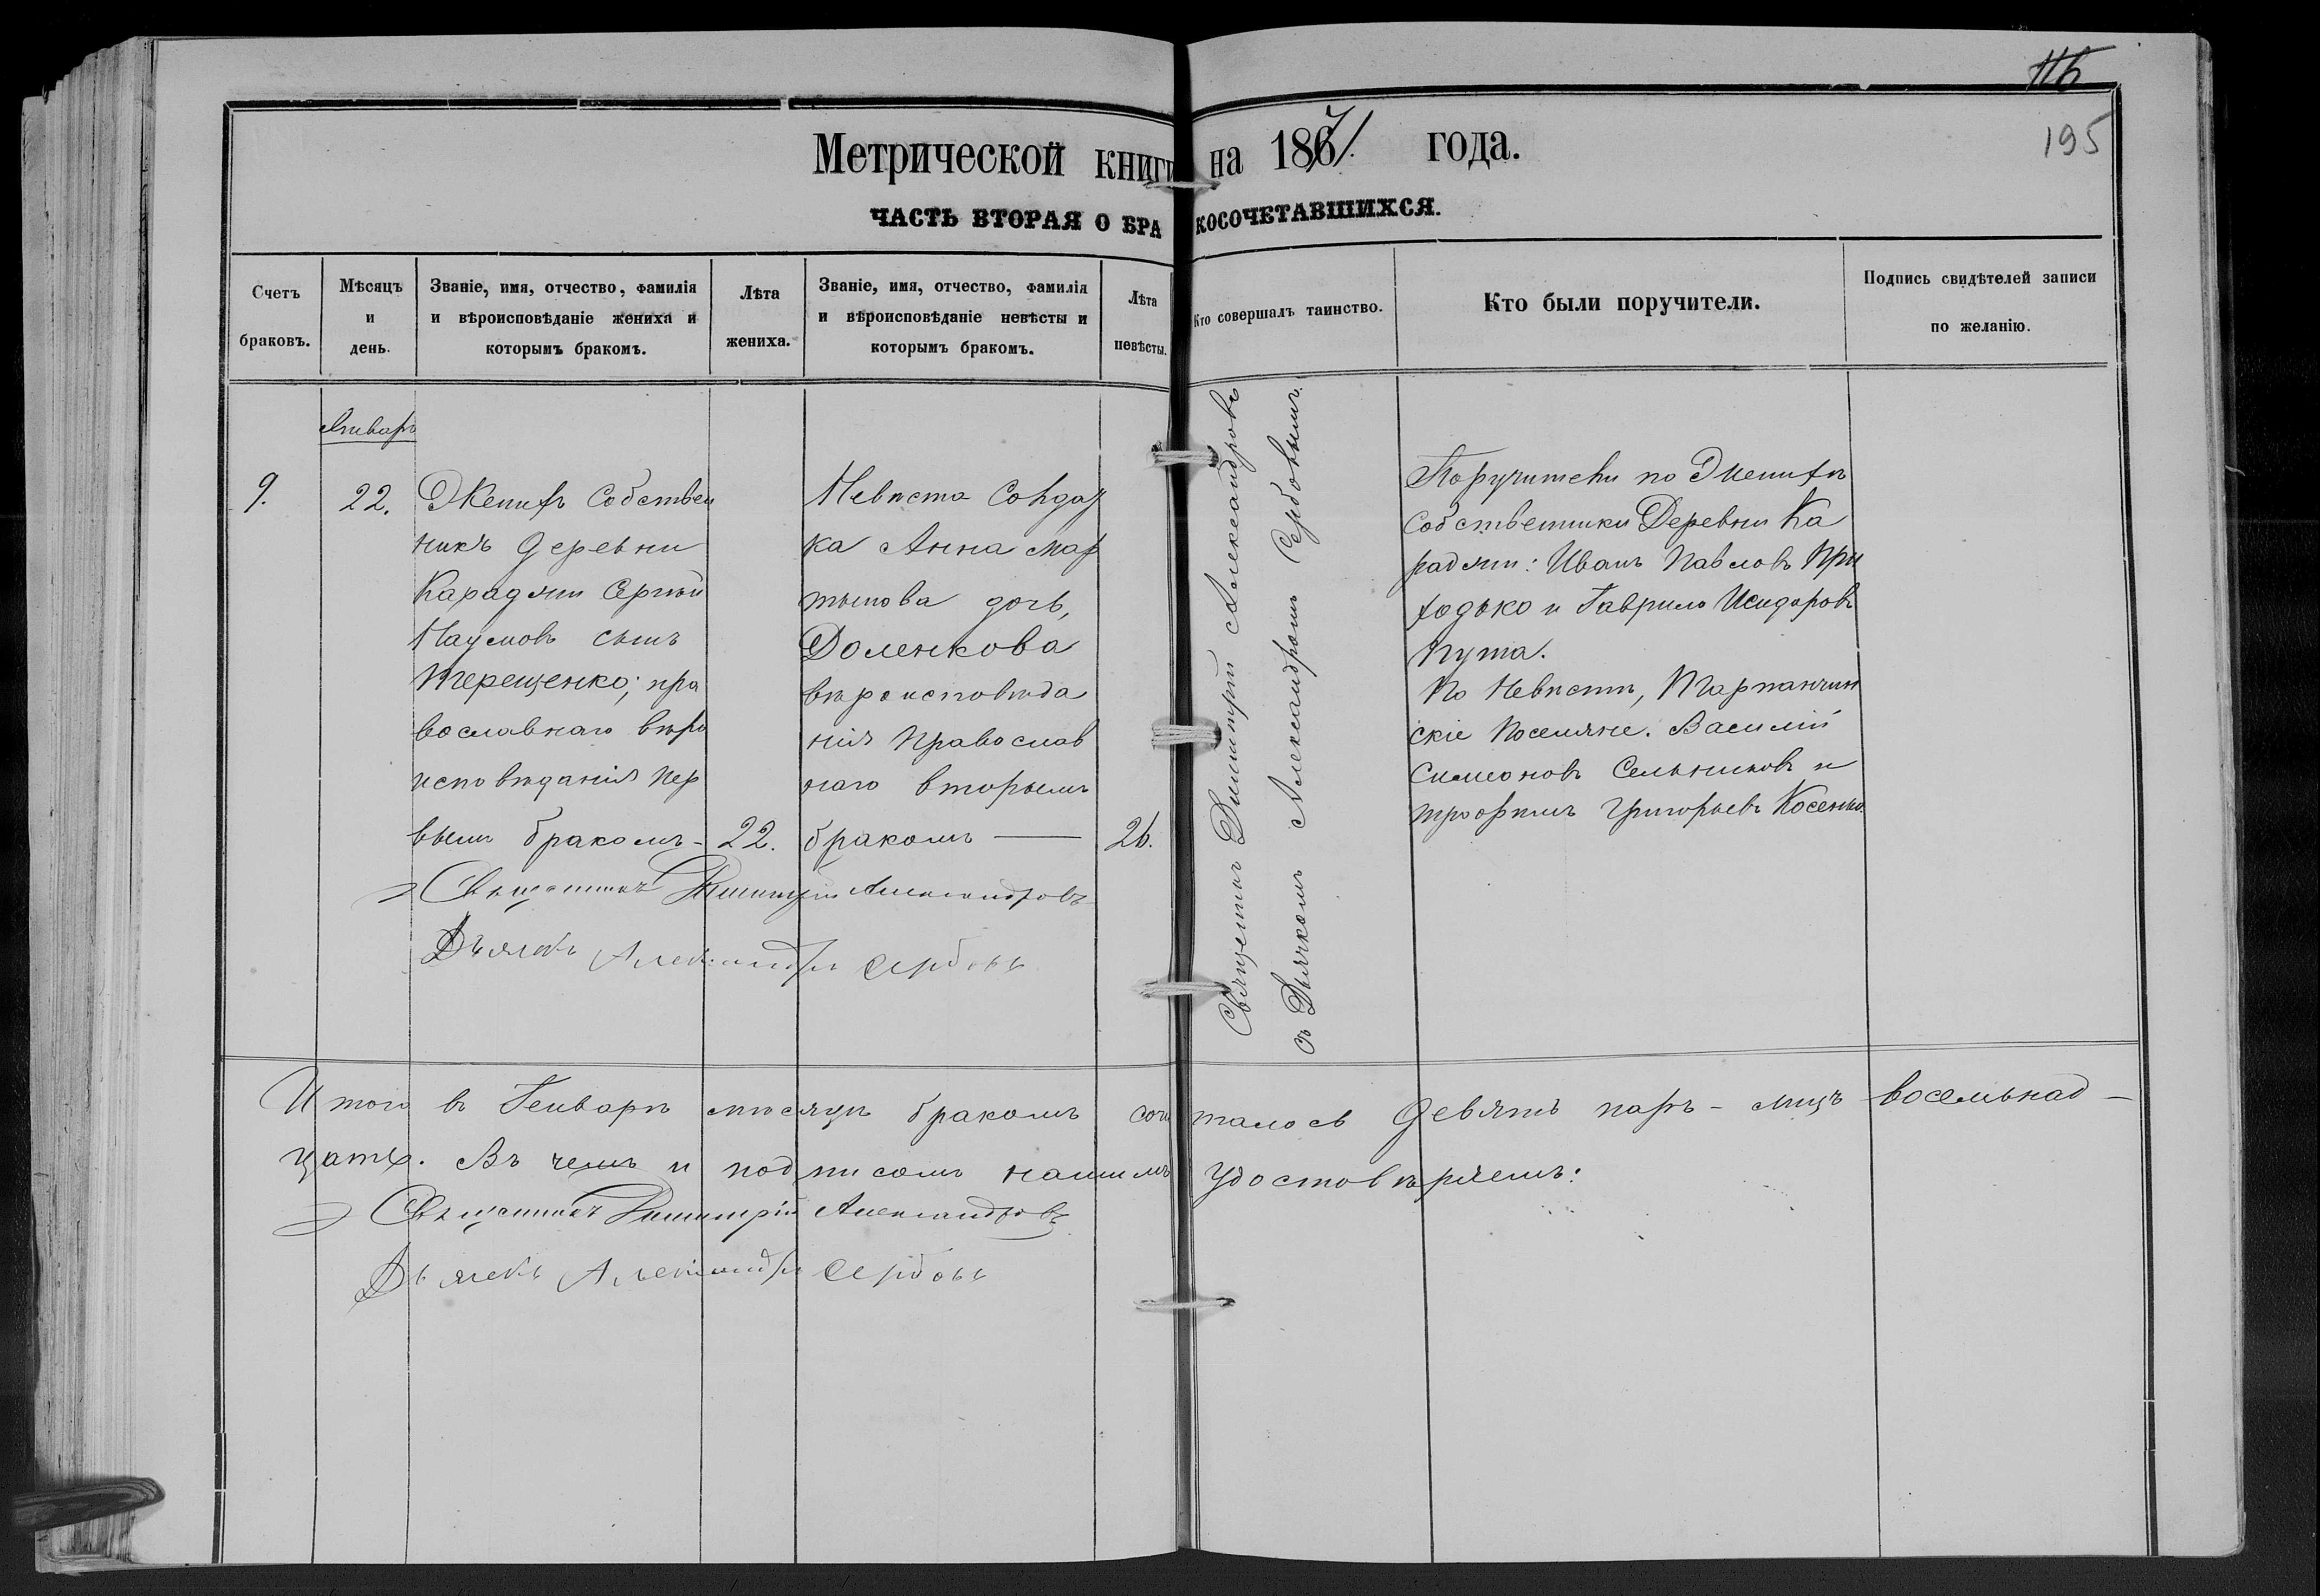 116
195
Метрической книги на 1871 года.
ЧАСТЬ ВТОРАЯ О БРАКОСОЧЕТАВШИХСЯ.
Счетъ браковъ.
Мѣсяцъ и день.
Званіе, имя, отчество, фамилія и вѣроисповѣданіе жениха и которымъ бракомъ.
Лѣта жениха.
Званіе, имя, отчество, фамилія и вѣроисповѣданіе невѣсты и которымъ бракомъ.
Лѣта невѣсты.
Кто совершалъ таинство.
Кто были поручители.
Подпись свидѣтелей записи по желанію.
Январь
9.
22.
Женихъ Собствен
никъ деревни
Караджи Сергѣй
Наумовъ сынъ
Терещенко; пра
вославнаго вѣро
исповѣданія пер
вымъ бракомъ-
22.
Невѣста Солдат
ка Анна Мар
тынова дочь,
Доленкова
вѣроисповѣда
нія православ
наго вторымъ
бракомъ —
26.
Священникъ Димитрій Александровъ
съ Дьячкомъ Александромъ Сербовымъ.
Поручители по Женихѣ
Собственники Деревни Ка
раджи: Иванъ Павловъ При
ходько и Гаврило Исидоровъ
Пута.
По Невѣстѣ, Тарханчин
скіе Поселяне. Василій
Симеоновъ Сельниковъ и
Трофимъ Григорьевъ Косенко.
Священникъ Димитрій Александровъ
Дьячекъ Александръ Сербовъ
Итого въ Генварѣ мѣсяцѣ бракомъ сочеталось девять паръ - лицъ восемьнад-
цать. Въ чемъ и подписомъ нашимъ удостовѣряемъ:
Священникъ Димитрій Александровъ
Дьячекъ Александръ Сербовъ